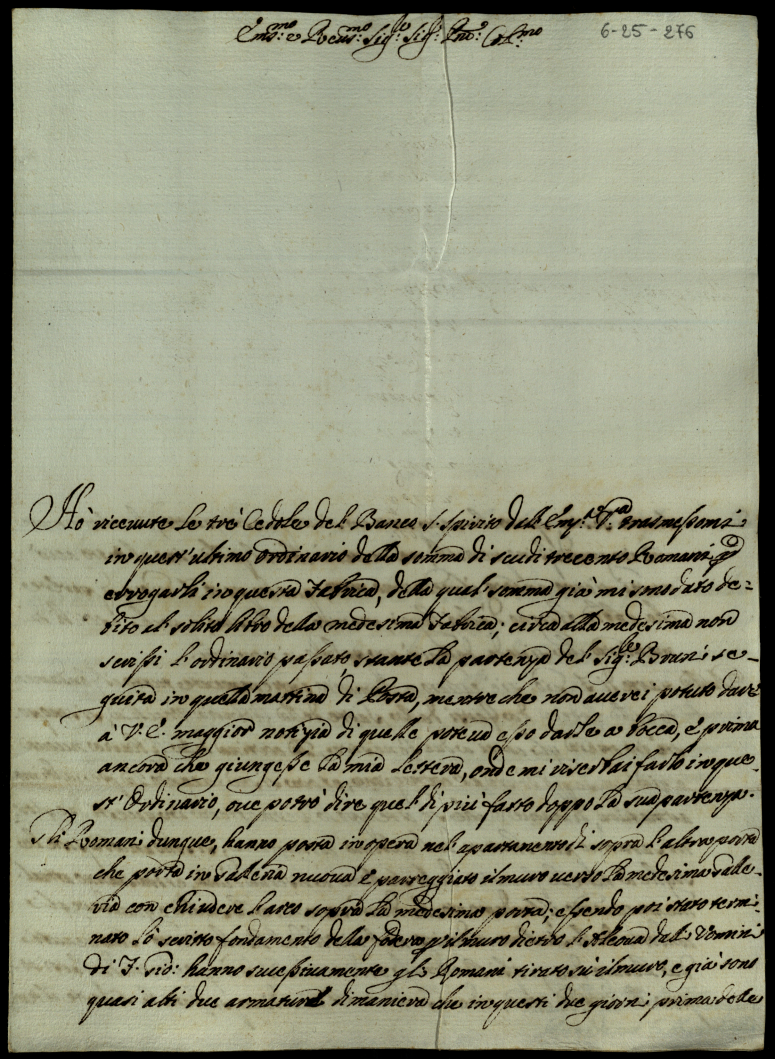 6-25-276
Em.mo e Rever.mo Sig.re Sig.re Pne: Col.mo
Hò riceuute le tre Cedole del Banco S. Spirito dall'Em.a V.ra trasmessomi
in quest'ultimo ordinario della somma di scudi trecento Romani p
errogarli in questa Fabrica, della qual somma già mi sono dato de=
bito al solito libro della medesima Fabrica; circa alla medesima non
scrissi l'ordinario passato, stante la partenza del Sig.re Bruni se=
guita in quella mattina di Posta, mentre che non auerei potuto dare
à V. E. maggior notizia di quelle poteua esso darle a bocca, e prima
ancora che giungesse la mia lettera, onde mi riserbai farlo in que=
st'Ordinario, oue potrò dire quel di più fatto doppo la sua partenza.
Li Romani dunque, hanno posta in opera nel apartamento di sopra l'altra porta
che porta in Galleria nuoua e pareggiato il muro uerso la medesima Galle=
ria con chiudere l'arco sopra la medesima porta; essendo poi stato termi=
nato lo scritto fondamento della fodera p il muro dietro l'Alcoua dalli Uomini
di F. Gio: hanno successiuamente gli Romani tirato sù il muro, e già sono
quasi alti due armature dimaniera che in questi due giorni prima delle